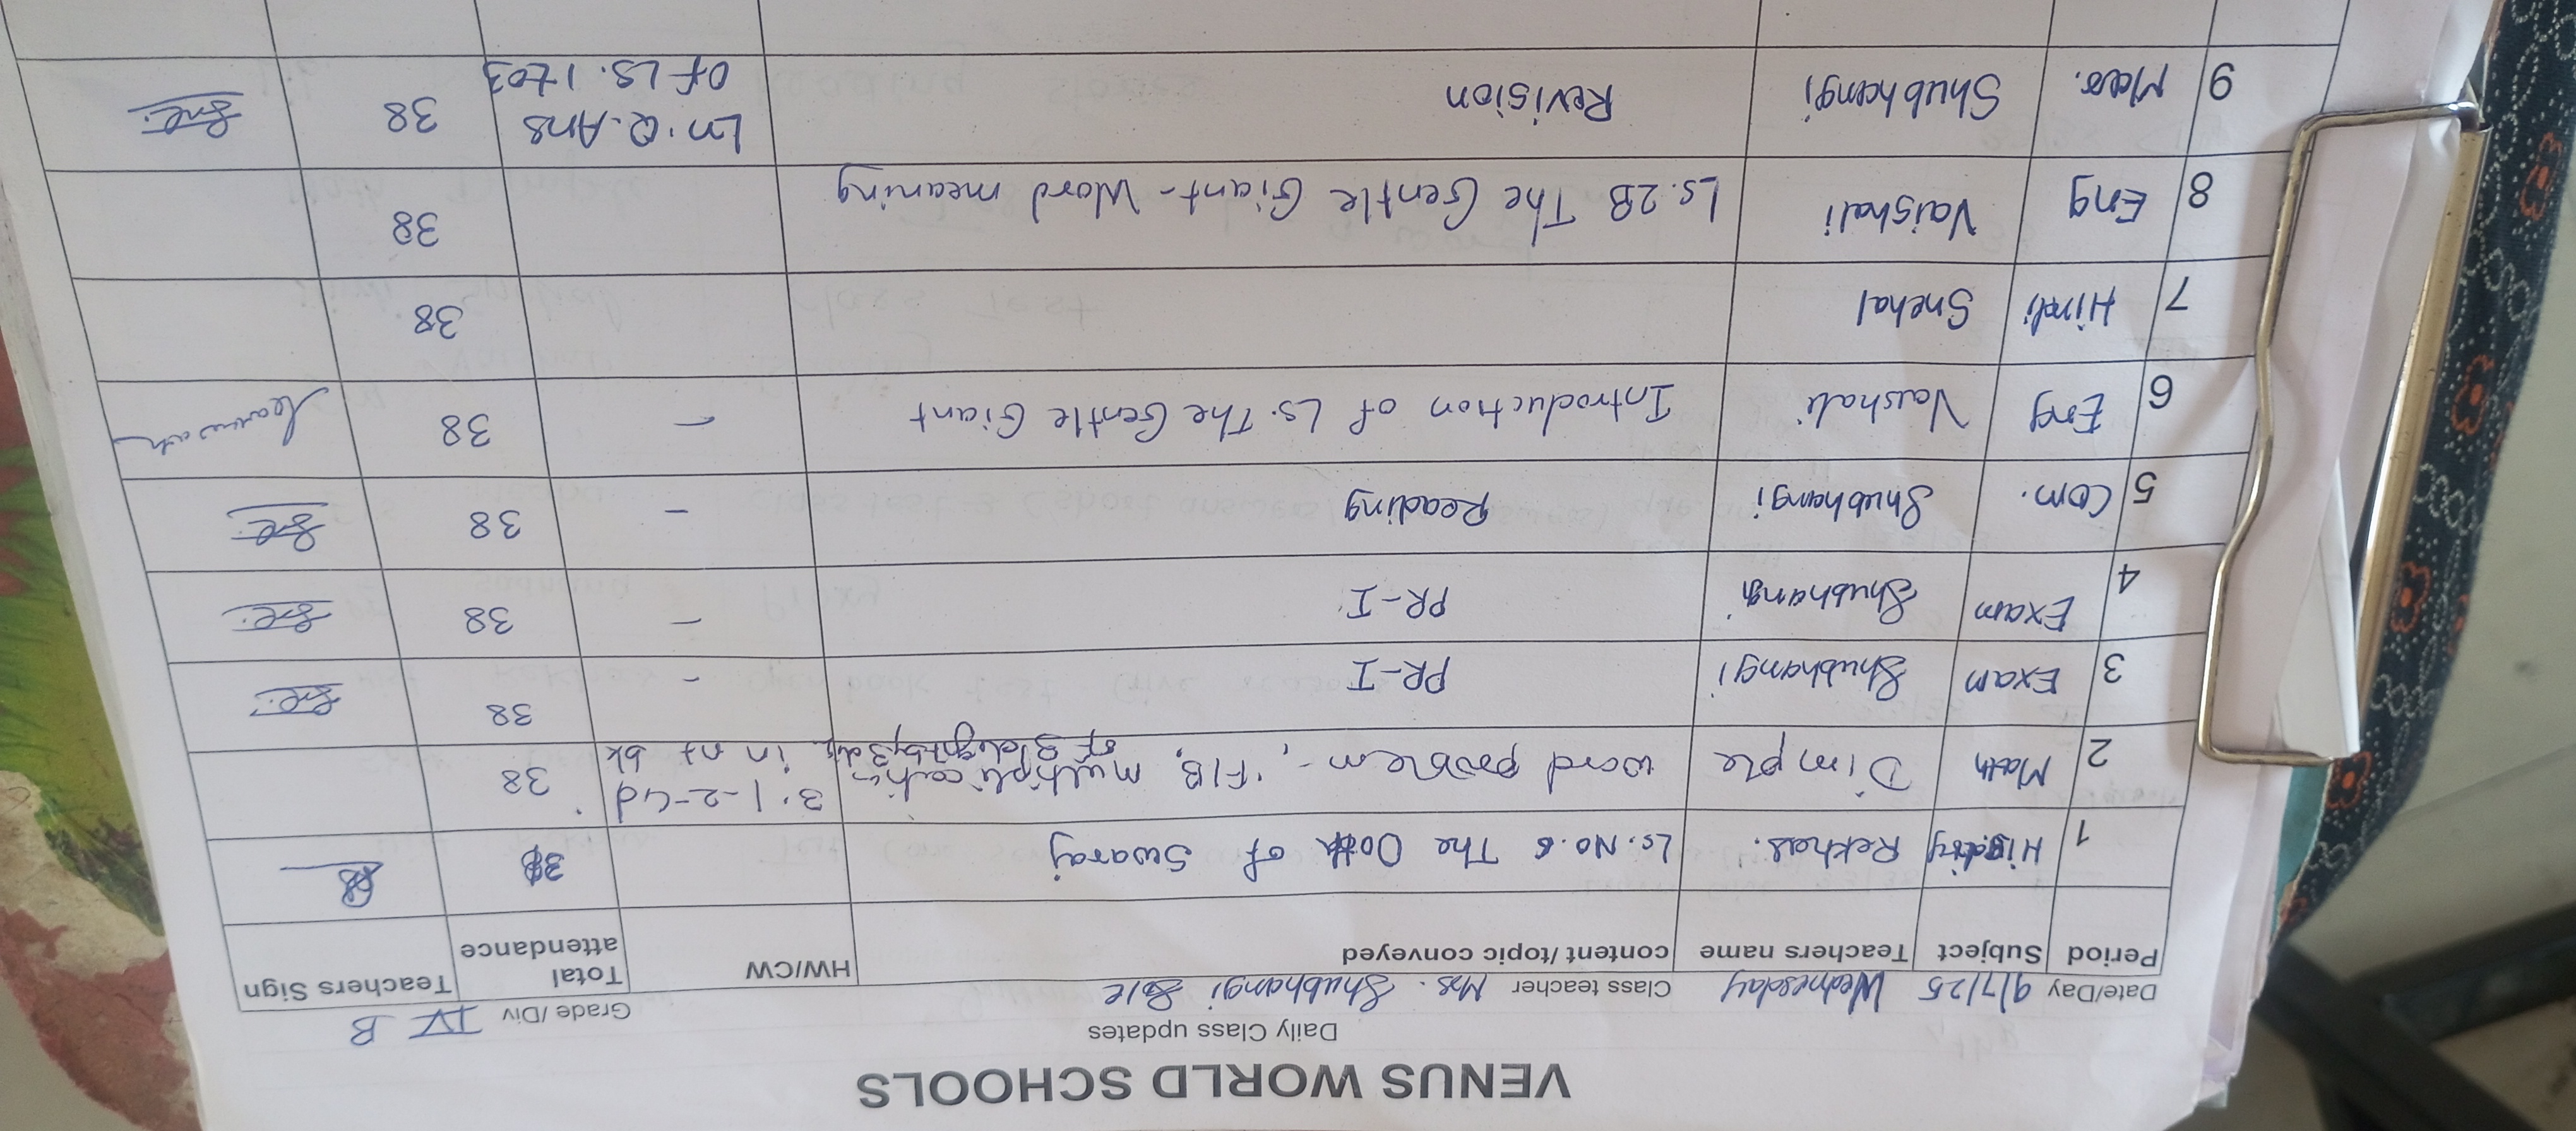 VENUS WORLD SCHOOLS
Daily Class updates
Grade /Div IV B
Date/Day 9/7/25 Wednesday Class teacher Mrs. Shubhangi
Period Subject Teachers name content /topic conveyed HW/CW Total attendance Teachers Sign
1 History Rekha Ls. No. 6 The Oath of Swaraj
2 Math Dimple word problem -, F/B, multiplication of 3 digit by 3 digit 3.1-2-4d in nt bk 38
3 Exam Shubhangi PR-I - 38
4 Exam Shubhangi PR-I - 38
5 Com. Shubhangi Reading - 38
6 Eng Vaishali Introduction of Ls. The Gentle Giant - 38
7 Hindi Snehal 38
8 Eng Vaishali Ls. 2B The Gentle Giant - Word meaning 38
9 Mar. Shubhangi Revision Ln. Q. Ans of Ls. 1 to 3 38